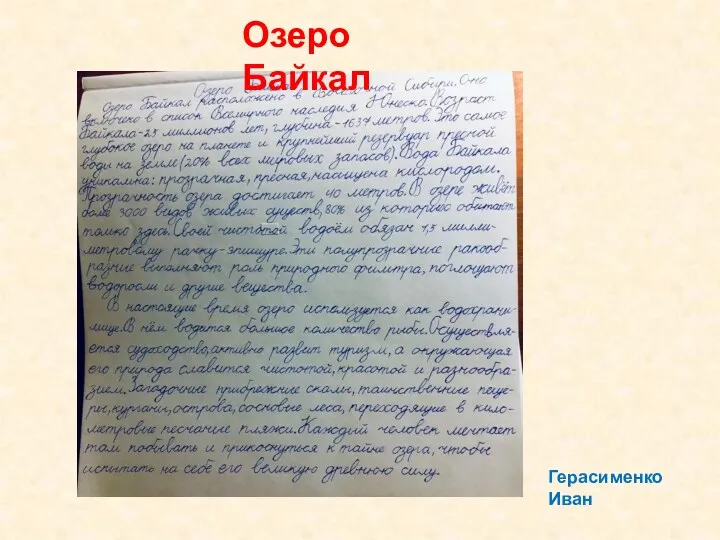 Озеро
Байкал
Озеро
Озеро Байкал расположено в Восточной Сибири. Оно
включено в список Всемирного наследия Юнеско. Возраст
Байкала-25 миллионов лет, глубина-1637 метров. Это самое
глубокое озеро на планете и крупнейший резервуар пресной
воды на земле (20% всех мировых запасов). Вода Байкала
уникальна: прозрачная, пресная, насыщена кислородом.
Прозрачность озера достигает 40 метров. В озере живёт
более 3000 видов живых существ, 80% из которых обитают
только здесь. Своей чистотой водоём обязан 1,5 милли-
метровому рачку-эпишуре. Эти полупрозрачные ракооб-
разные выполняют роль природного фильтра, поглощают
водоросли и другие вещества.
В настоящие время озеро используется как водохрани-
лище. В нём водится большое количество рыбы. Осуществля-
ется судоходство, активно развит туризм, а окружающая
его природа славится чистотой, красотой и разнообра-
зием. Загадочные прибрежные скалы, таинственные пеще-
ры, курганы, острова, сосновые леса, переходящие в кило-
метровые песчаные пляжи. Каждый человек мечтает
там побывать и прикоснуться к тайне озера, чтобы
испытать на себе его великую древнюю силу.
Герасименко
Иван